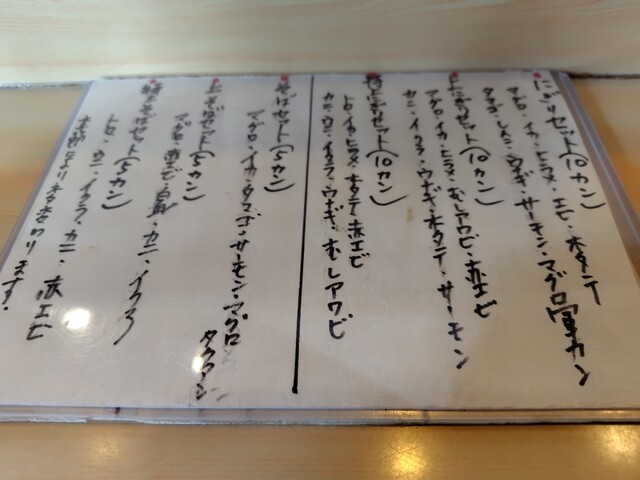 にぎりセット(10カン)
マグロ・イカ・ヒラメ・エビ・ホタテ
タマゴ・しんこ・ウナギ・サーモン・マグロ軍カン
上にぎりセット(10カン)
マグロ・イカ・ヒラメ・むしアワビ・赤エビ
カニ・イクラ・ウナギ・ホタテ・サーモン
特上にぎりセット(10カン)
トロ・イカ・ヒラメ・ホタテ・赤エビ
カニ・ウニ・イクラ・ウナギ・むしアワビ
そばセット(5カン)
マグロ・イカ・タマゴ・サーモン・マグロ
タクアン
上そばセット(5カン)
マグロ・赤エビ・白身・カニ・イクラ
特上そばセット(5カン)
トロ・ウニ・イクラ・カニ・赤エビ
変わります。